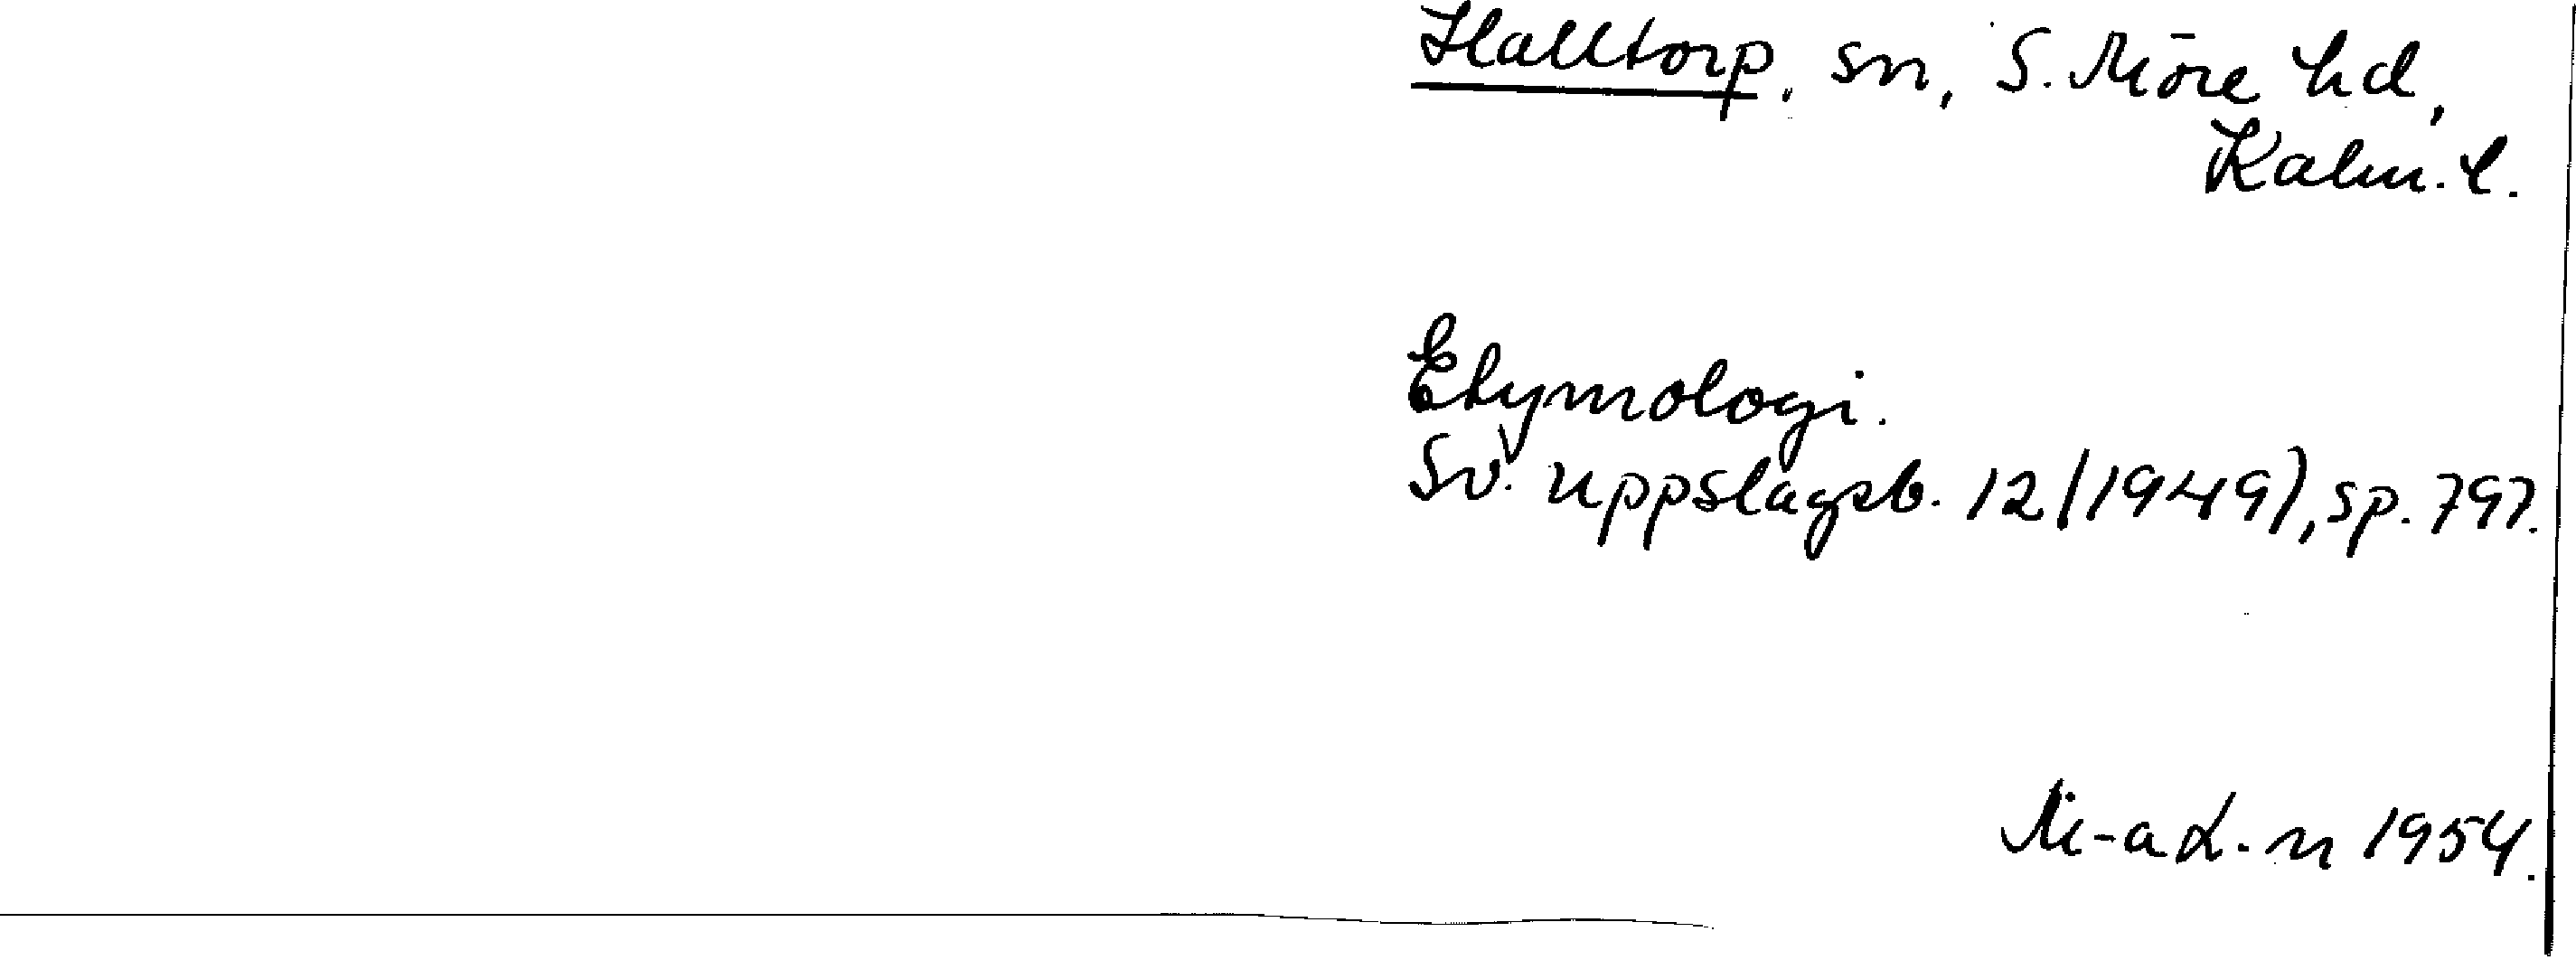 Halltorp, sn, S. Möre hd,
Kalm. l.
Etymologi.
Sv. Uppslagsb. 12 (1949), sp. 797.
M-a L-n 1954.